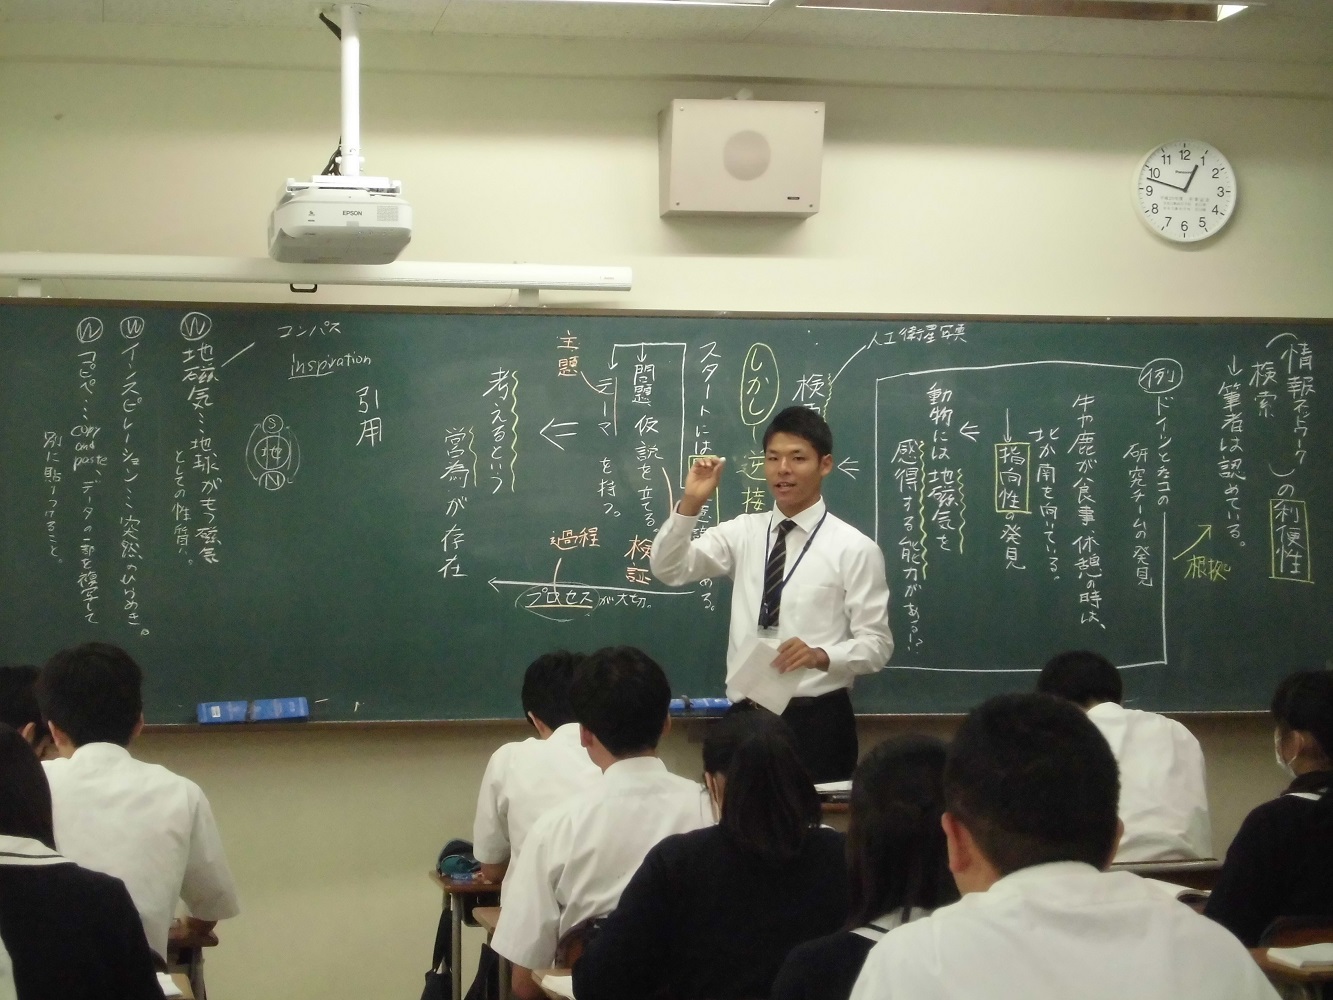 (情報ネットワーク)の利便性
検索
↓筆者は認めている。
根拠
例
ドイツとチェコの
研究チームの発見
牛や鹿が食事・休憩の時は、
北か南を向いている。
↓
指向性の発見
動物には地磁気を
感得する能力がある!?
人工衛星写真
しかし－逆接
スタートには
問題・仮説を立てる。検証
テーマを持つ。
主題
過程
プロセスが大切。
考えるという
営為が存在
引用
コンパス
inspiration
W 地磁気…地球がもつ磁気
としての性質。
S
地
N
W インスピレーション…突然のひらめき。
W コピペ…copy and paste データの一部を複写して
別に貼りつけること。
EPSON
Panasonic
12
1
2
3
4
5
6
7
8
9
10
11